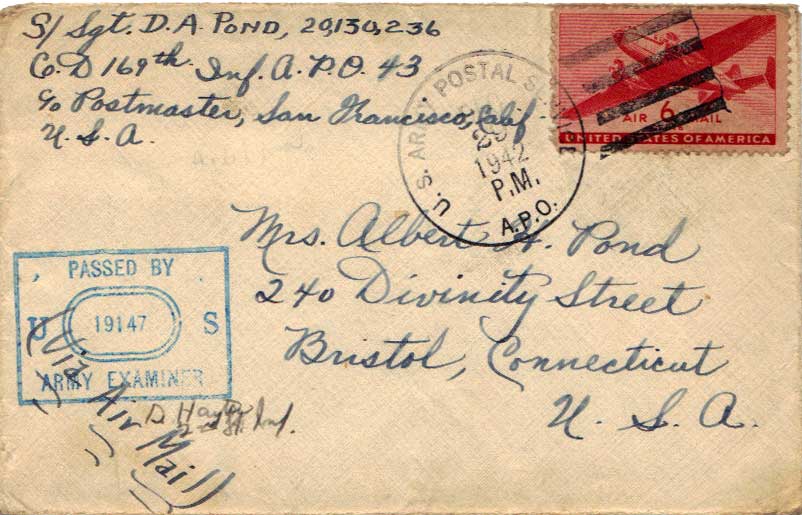 S/Sgt. D. A. POND, 20,130,236
Co. D 169th Inf. A.P.O. 43
c/o Postmaster, San Francisco, Calif.
U. S. A.
U.S. ARMY POSTAL
1942
P.M.
A.P.O.
AIR 6 MAIL
UNITED STATES OF AMERICA
Mrs. Albert H. Pond
240 Divinity Street
Bristol, Connecticut
U. S. A.
PASSED BY
U 19147 S
ARMY EXAMINER
Via Air Mail
D.
2nd Lt. Inf.